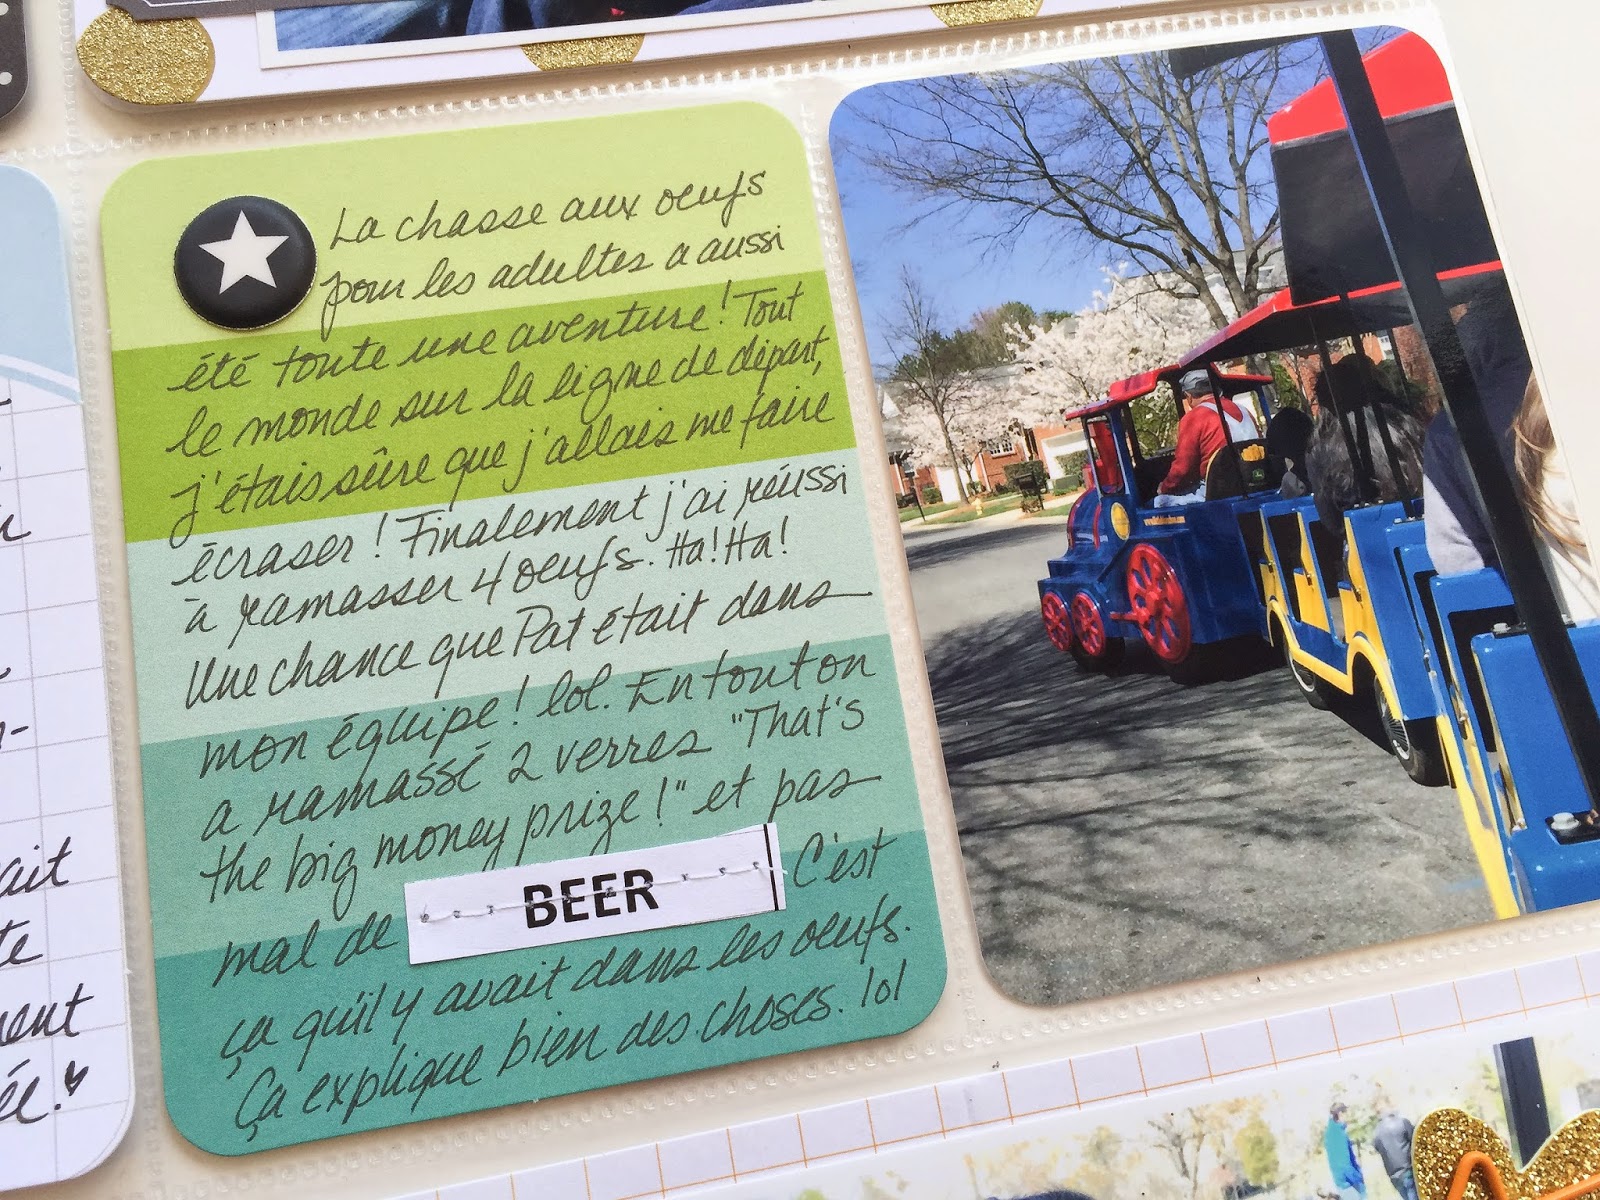 La chasse aux oeufs
pour les adultes a aussi
été toute une aventure! Tout
le monde sur la ligne de départ,
j'étais sûre que j'allais me faire
écraser! Finalement j'ai réussi
à ramasser 4 oeufs. Ha! Ha!
Une chance que Pat était dans
mon équipe! lol. En tout on
a ramassé 2 verres "That's
the big money prize!" et pas
mal de BEER C'est
ça qu'il y avait dans les oeufs.
Ça explique bien des choses. lol
ait
te
ment
ée.